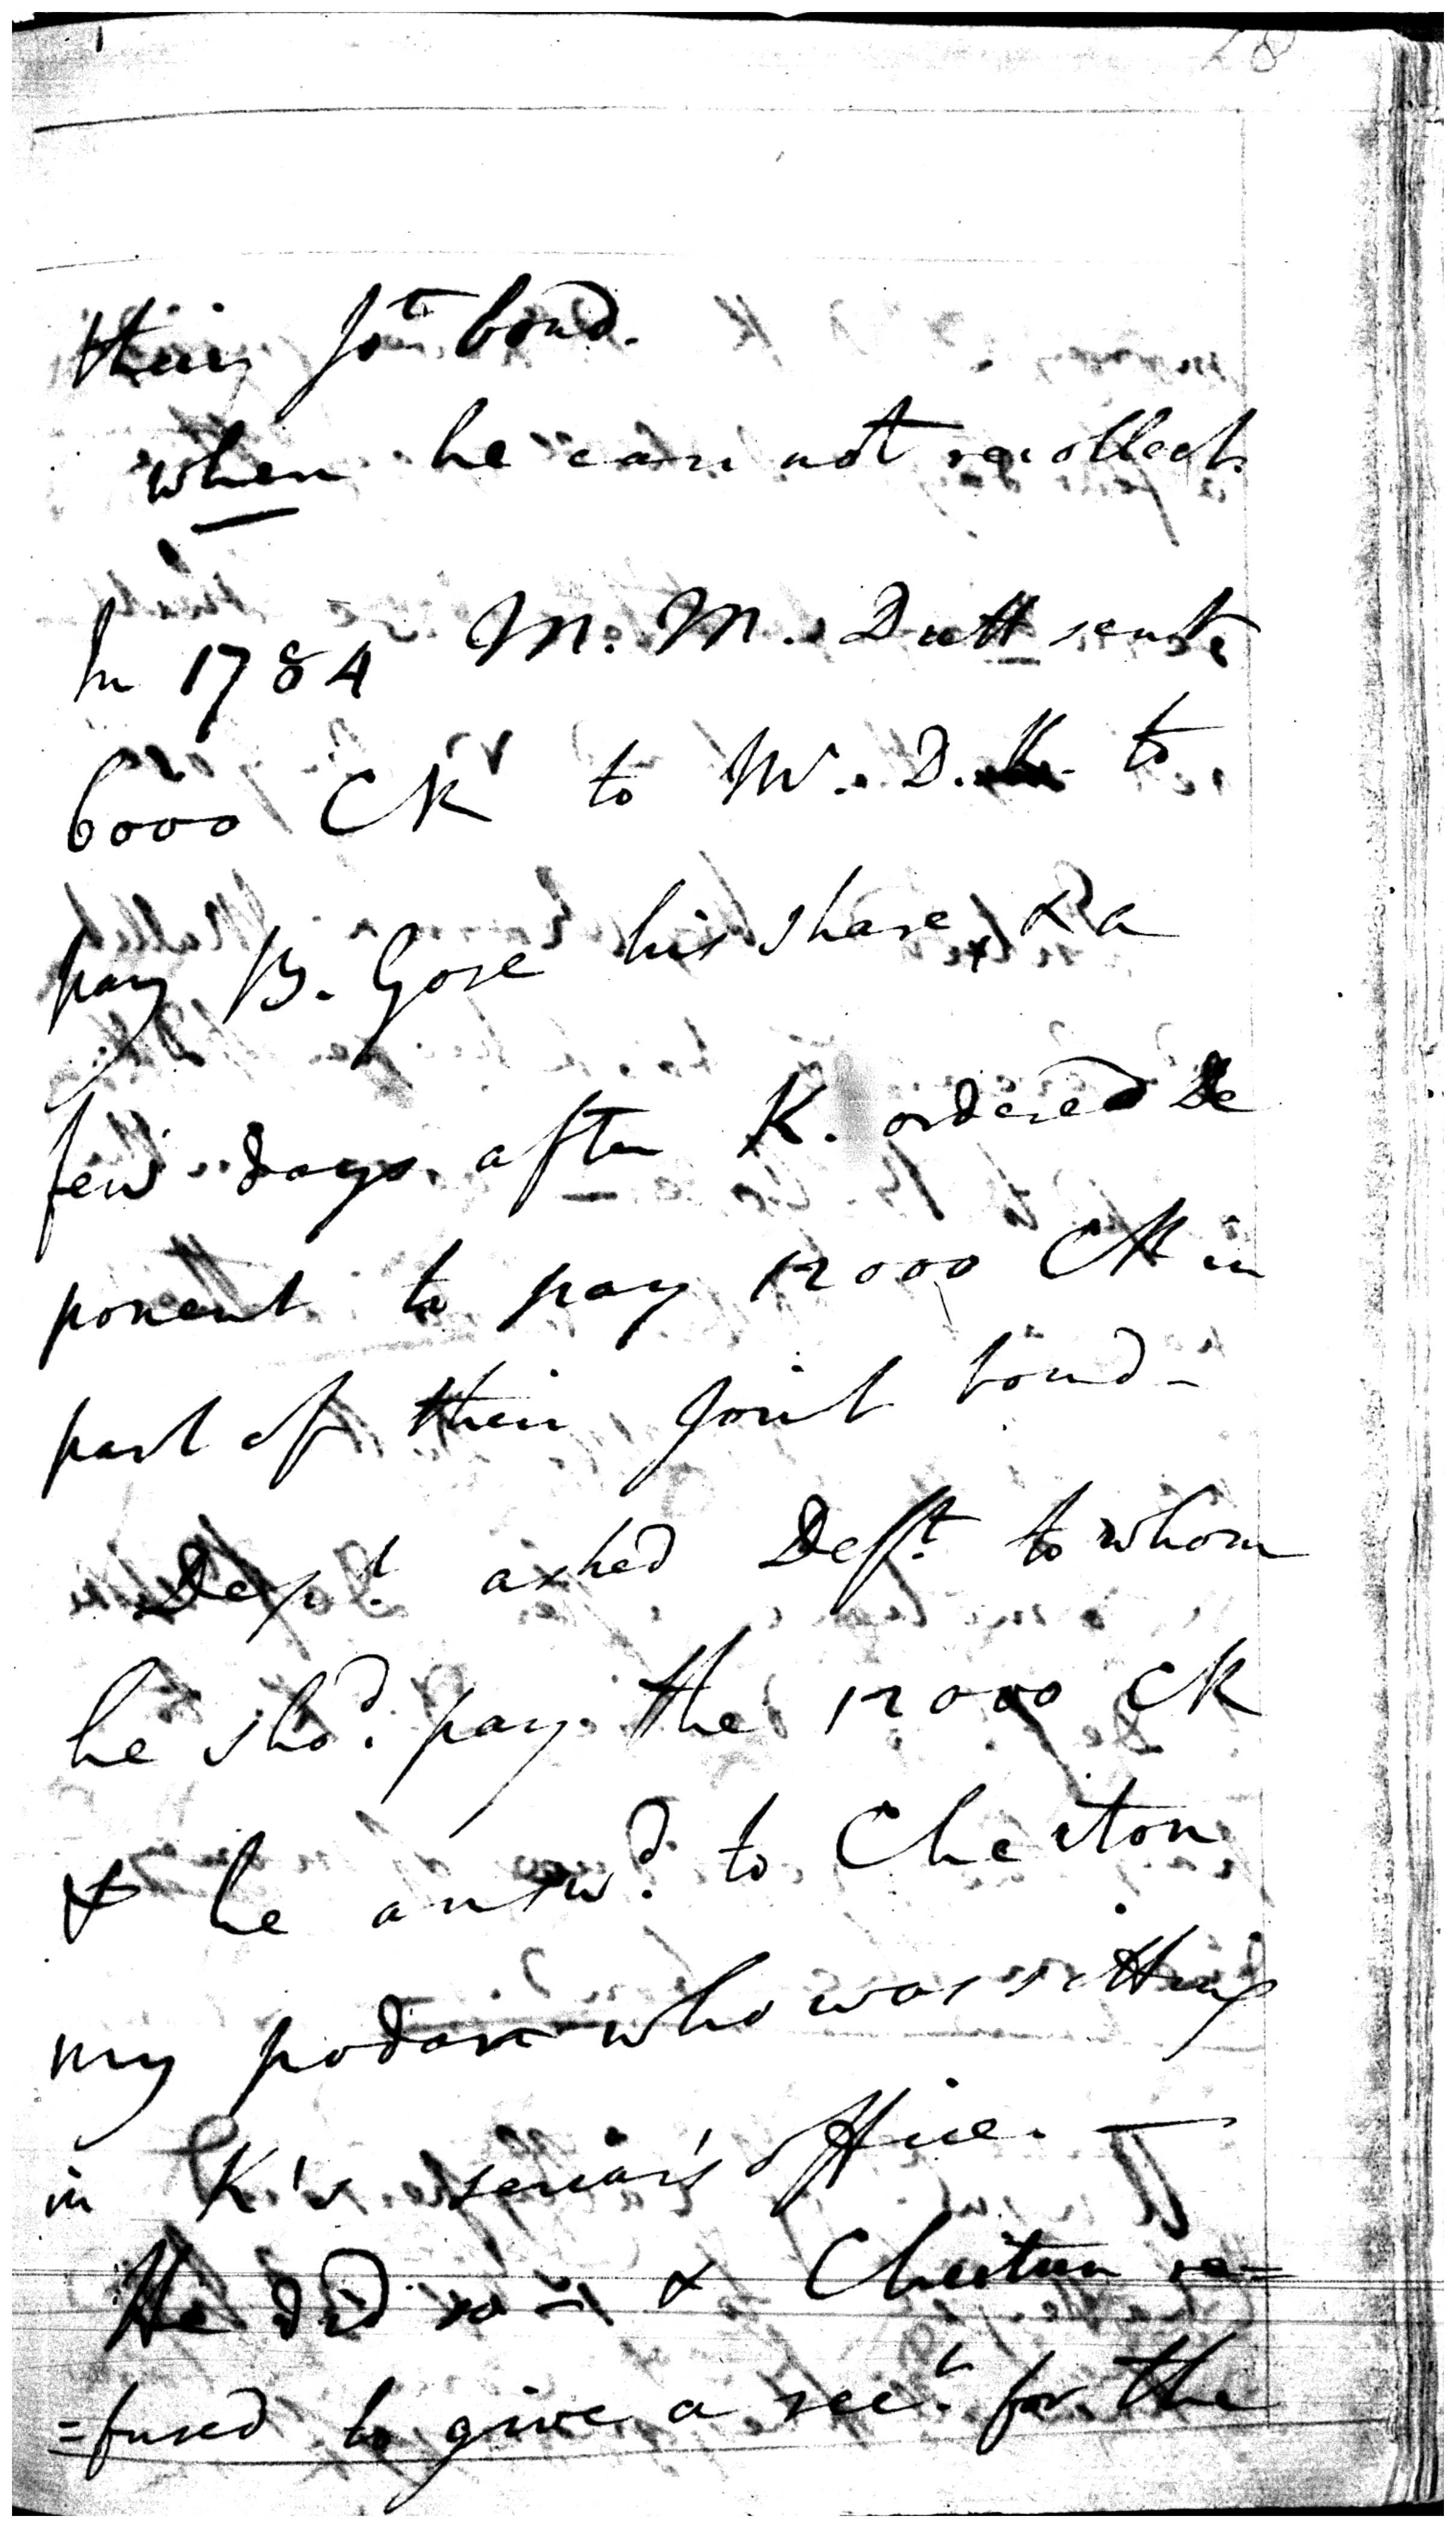 28
their Jt bond.
when he can not recollect.
In 1784 M. M. Dutt sent
6000 CR to M. D. to
pay B. Gose his share & a
few days after K. ordered De
ponent to pay 12000 CR in
part of their Joint bond -
Dept. asked Deft. to whom
he shod. pay the 12000 CR
& he answd. to Cheiton
my podar who was sitting
in K's sercar's office. —
He did so — & Cheitun re=
=fused to give a rect. for the